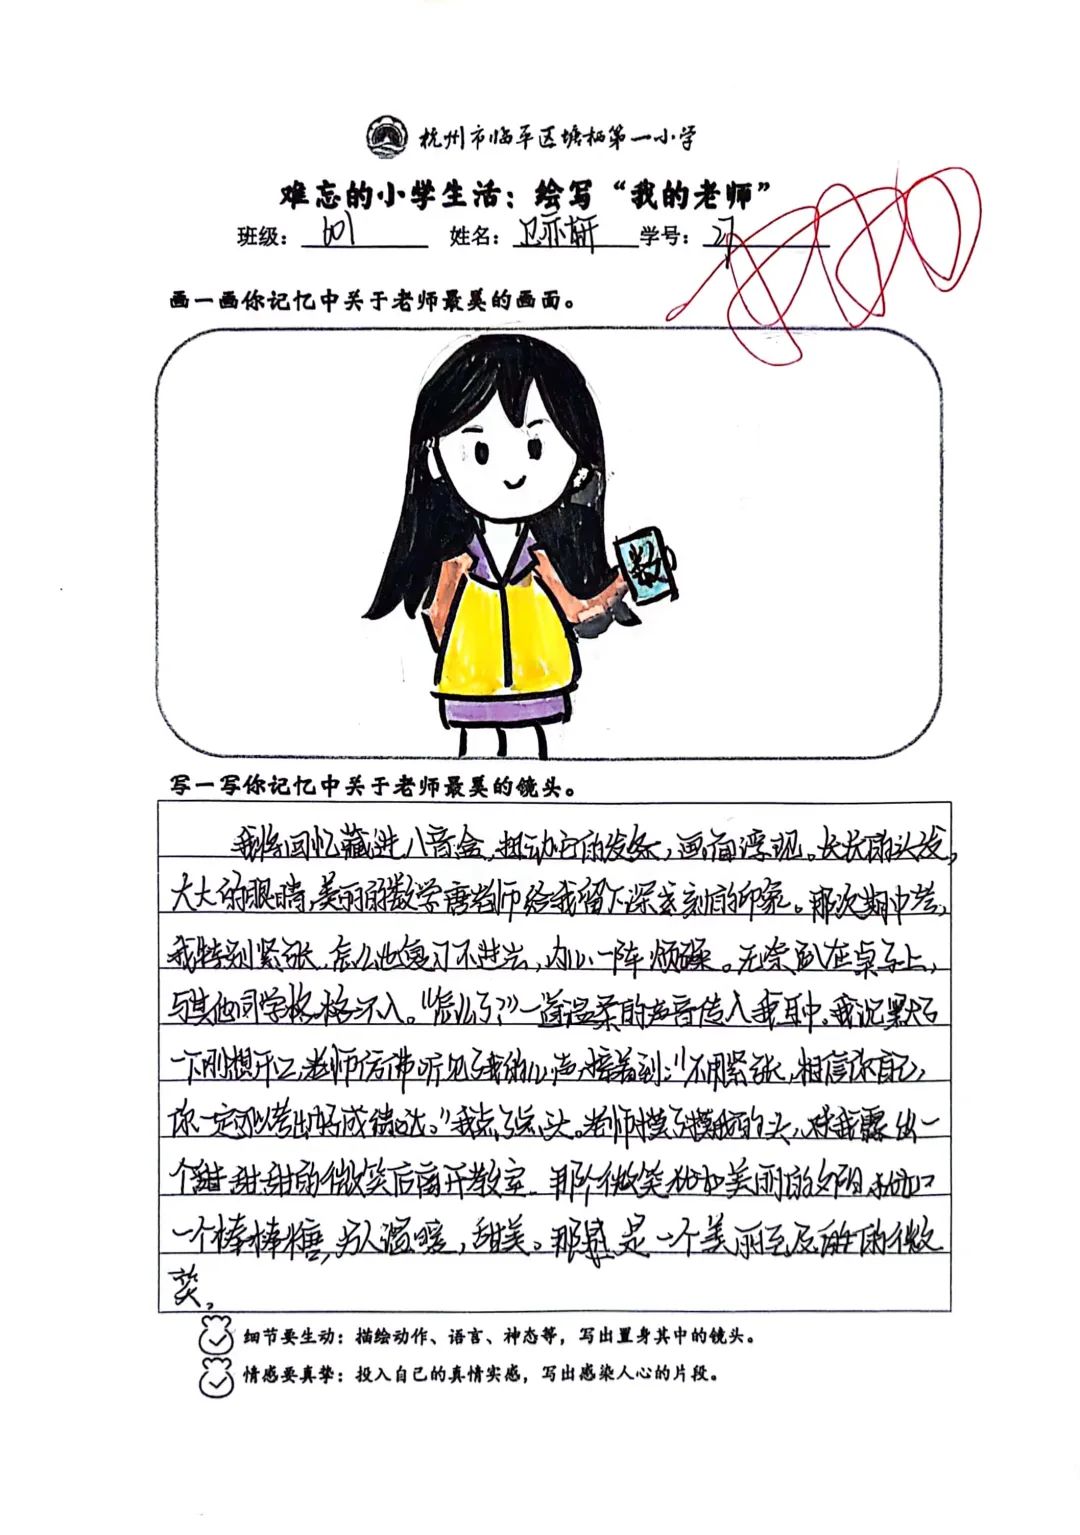 杭州市临平区塘栖第一小学
难忘的小学生活：绘写“我的老师”
班级： 601 姓名： 卫亦妍 学号： 27
画一画你记忆中关于老师最美的画面。
数
写一写你记忆中关于老师最美的镜头。
我将回忆藏进八音盒，扭动它的发条，画面浮现。长长的头发，
大大的眼睛，美丽的数学唐老师给我留下深刻的印象。那次期中考，
我特别紧张，怎么也复习不进去，内心一阵烦躁。无奈趴在桌子上，
与其他同学格格不入。“怎么了？”一道温柔的声音传入我耳中。我沉默了
一下刚想开口，老师仿佛听见了我的心声，接着到：“不用紧张，相信你自己，
你一定可以考出好成绩哒。”我点了点头。老师摸了摸我的头，对我露出一
个甜甜的微笑后离开教室。那个微笑犹如美丽的夕阳，犹如
一个棒棒糖，温暖，甜美。那是一个美丽至及的微
笑。
细节要生动：描绘动作、语言、神态等，写出置身其中的镜头。
情感要真挚：投入自己的真情实感，写出感染人心的片段。